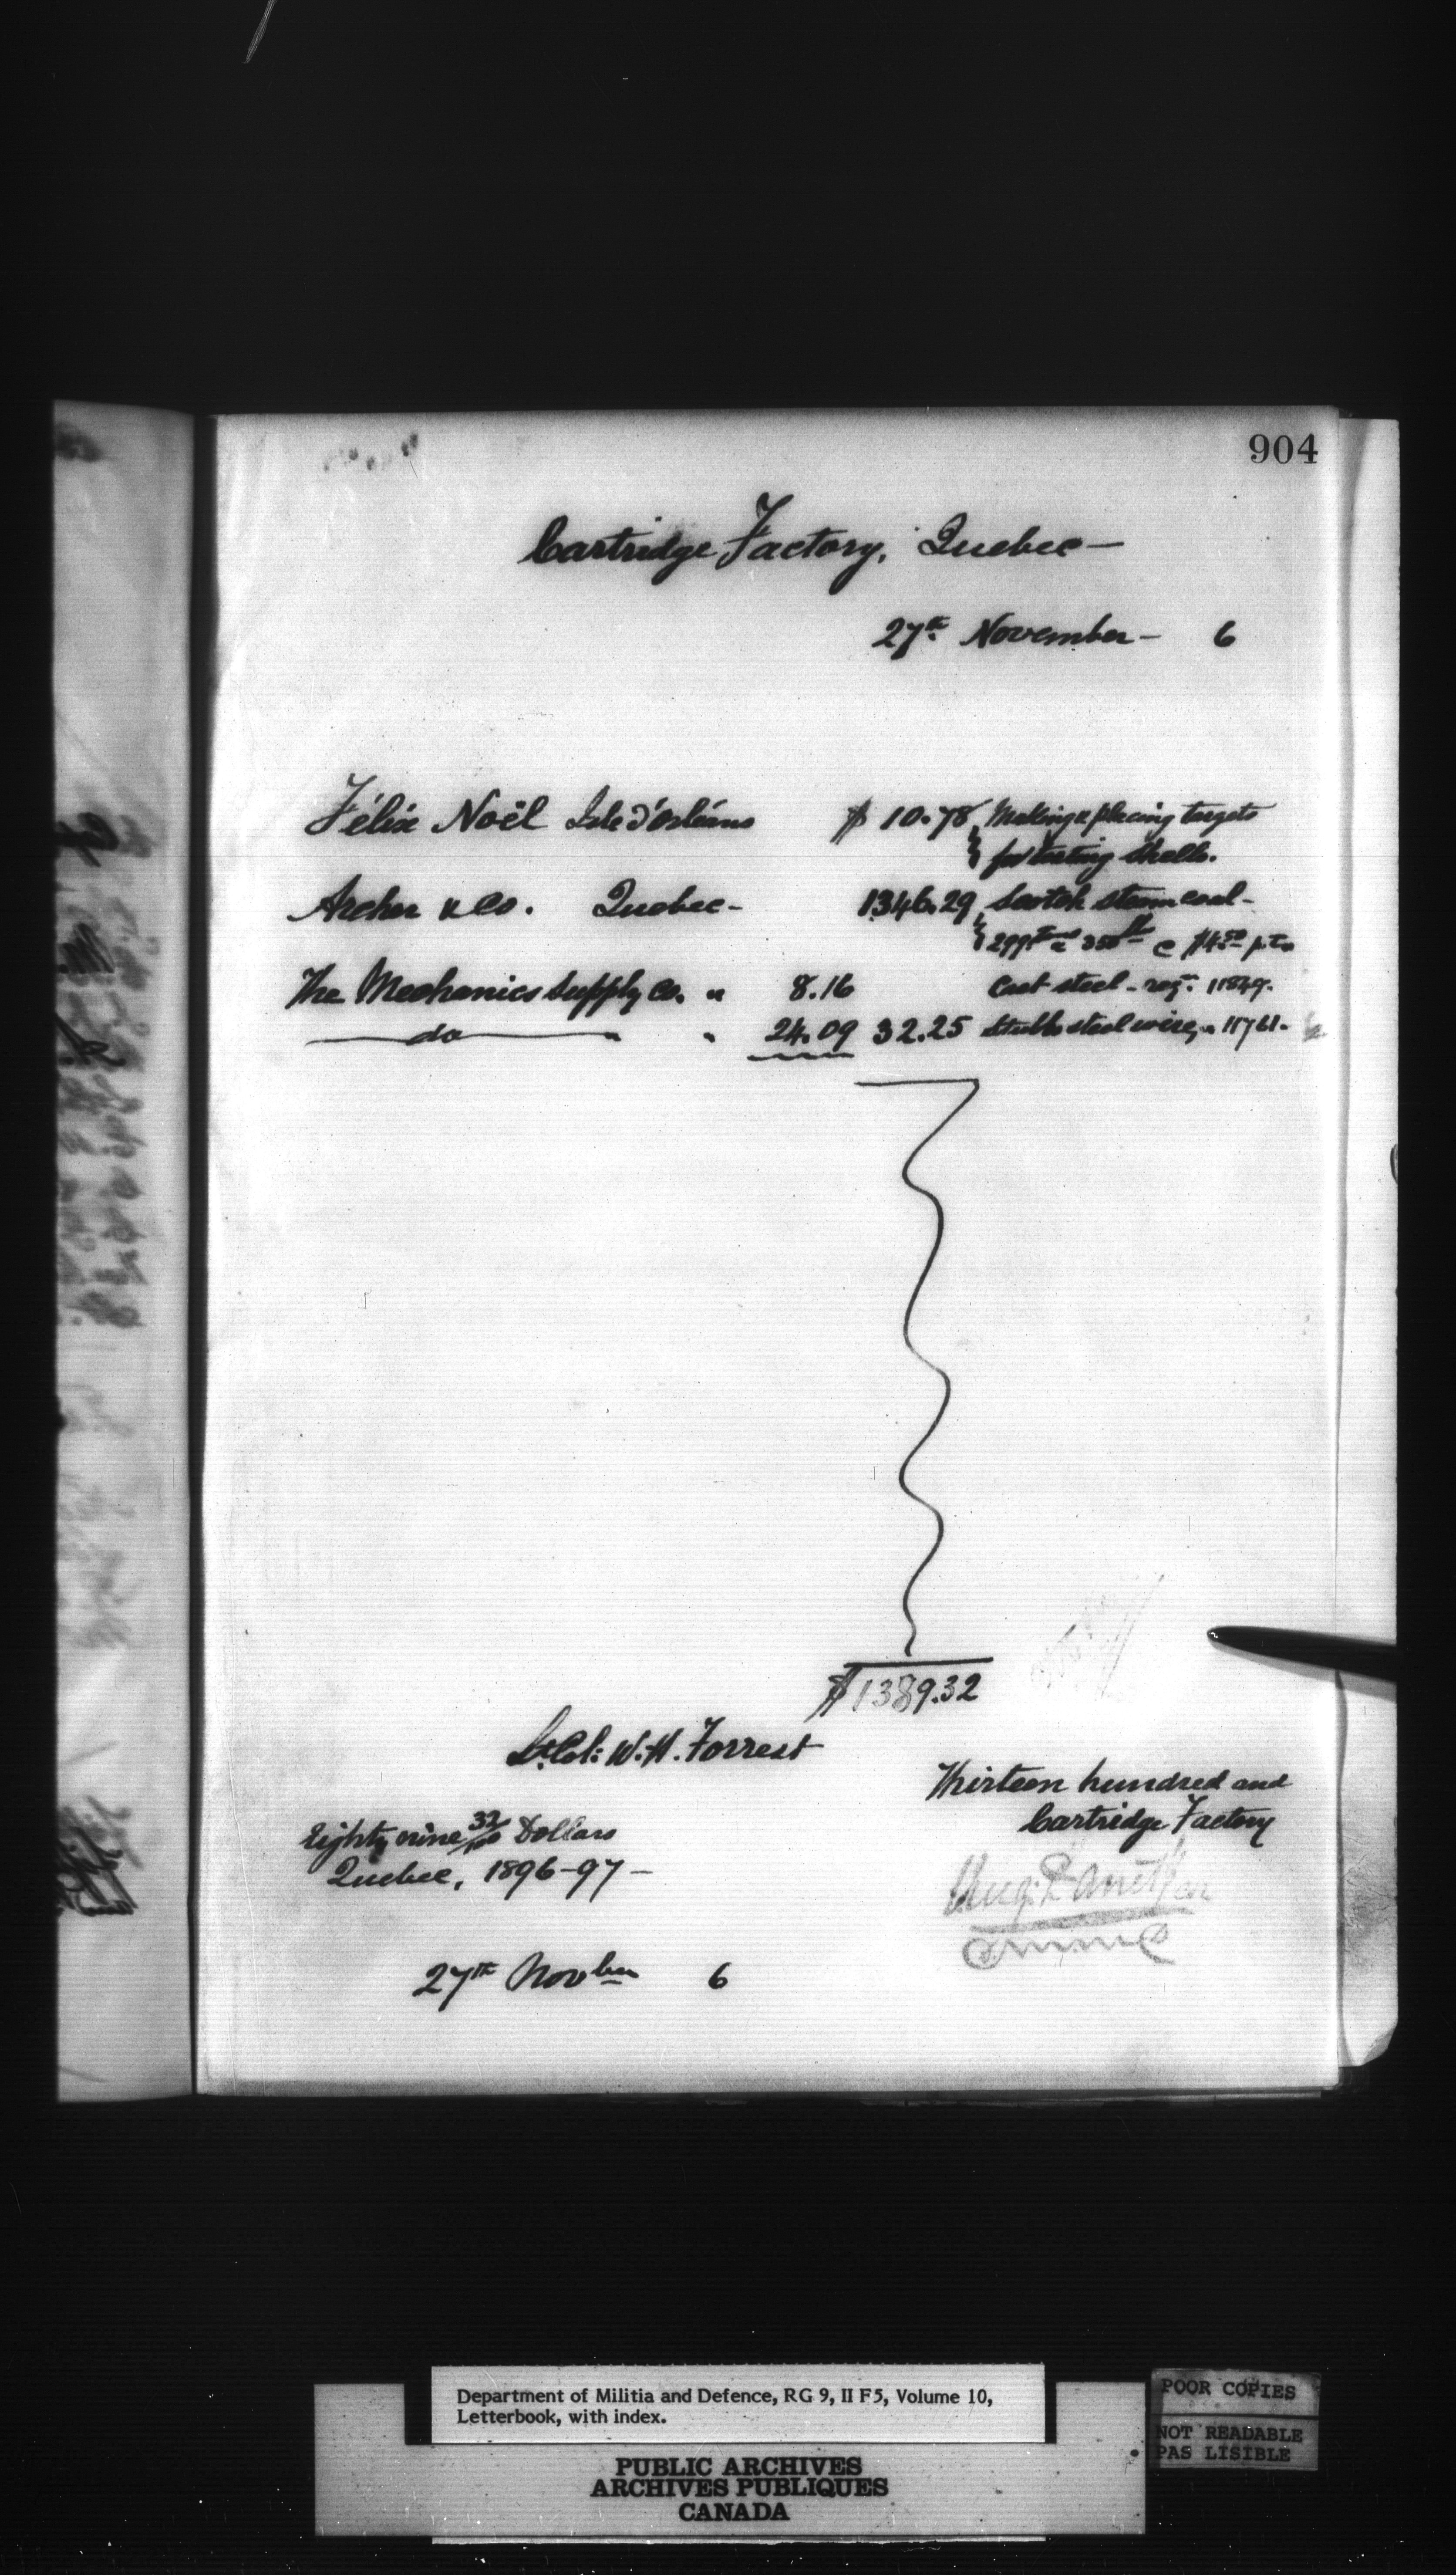 904
Cartridge Factory, Quebec—
27th November— 6
Félix Noël Isle d'Orléans $ 10.78 Making & placing targets
for testing shells.
Archer & Co. Quebec- 1346.29 Scotch steam coal-
299 tons 350 lb @ $4.50 p. ton
The Mechanics Supply Co. " 8.16 Cast steel - req. 11849.
do " 24.09 32.25 Stubbs steel wire, " 11761.
$1389.32
Lt. Col: W. H. Forrest
Thirteen hundred and
Eighty nine 32/100 Dollars
Cartridge Factory
Quebec, 1896-97—
27th Novber 6
Department of Militia and Defence, RG 9, II F5, Volume 10,
Letterbook, with index.
PUBLIC ARCHIVES
ARCHIVES PUBLIQUES
CANADA
POOR COPIES
NOT READABLE
PAS LISIBLE